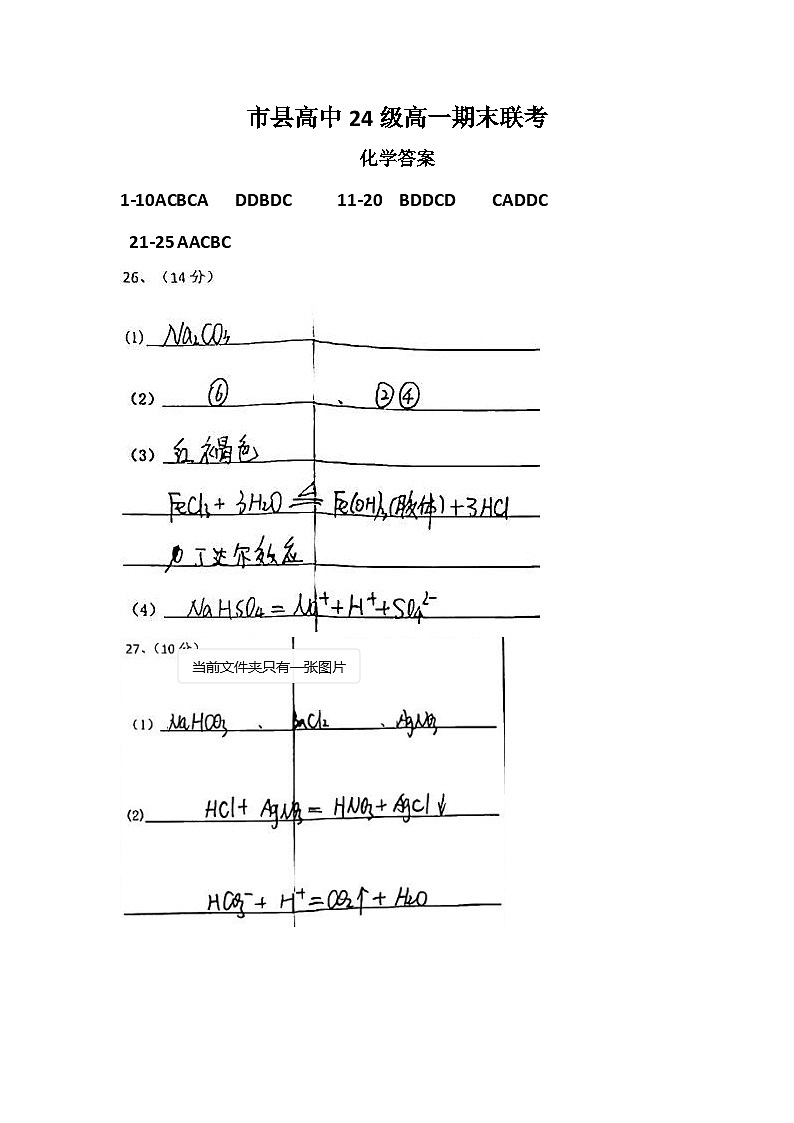 市县高中 24 级高一期末联考
化学答案
1-10ACBCA DDBDC 11-20 BDDCD CADDC
21-25 AACBC
26、（14 分）
(1) Na₂CO₃
(2) ⑥ 、 ②④
(3) 红褐色
FeCl₃ + 3H₂O ≜ Fe(OH)₃(胶体) + 3HCl
丁达尔效应
(4) NaHSO₄ = Na⁺ + H⁺ + SO₄²⁻
27、（10 分）
当前文件夹只有一张图片
(1) NaHCO₃ 、 BaCl₂ 、 AgNO₃
(2) HCl + AgNO₃ = HNO₃ + AgCl↓
HCO₃⁻ + H⁺ = CO₂↑ + H₂O